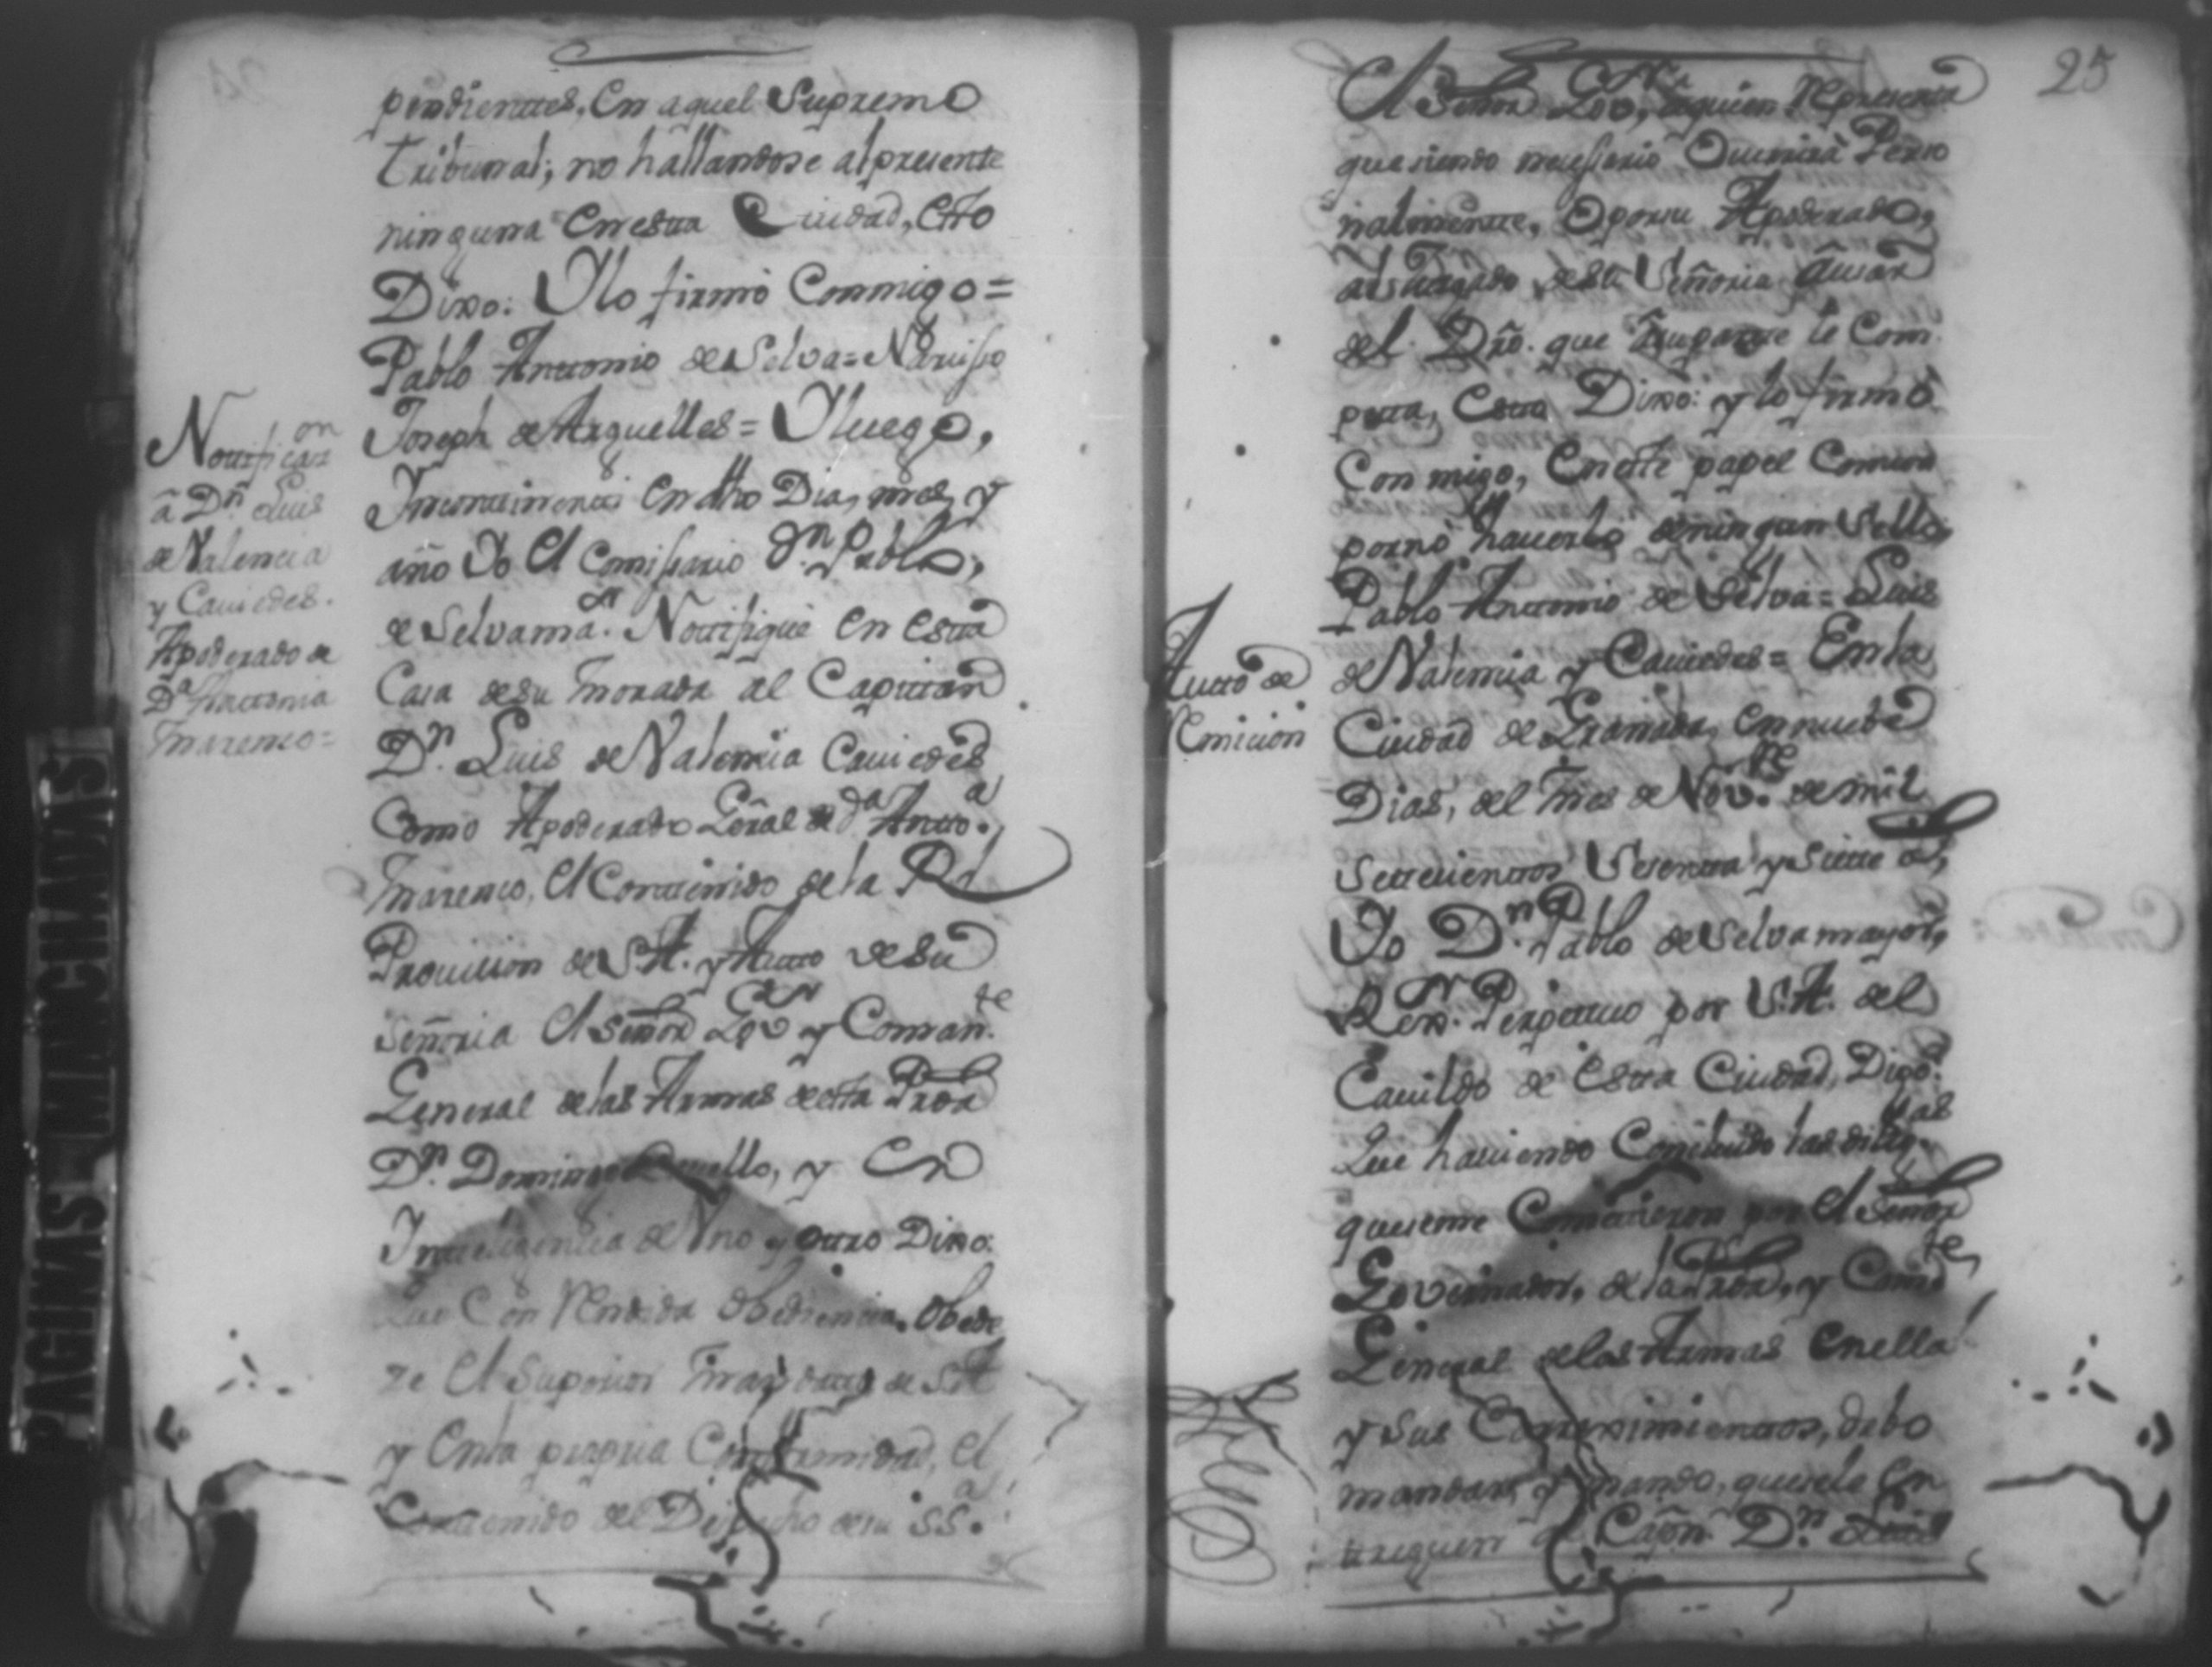 pendientes, en aquel Supremo
Tribunal; no hallandose al presente
ninguna en esta Ciudad, esto
Dixo: Y lo firmó Conmigo =
Pablo Anttonio de Selva = Narcisso
Joseph de Arguelles = Y luego,
Yncontinenti en dho Dia, mes, y
año Yo el Comissario Dn. Pablo,
de Selva mor. Nottifiqué en esta
Casa de su morada al Capittan
Dn. Luis de Valencia Caviedes
Como Apoderado Gral de da Antta.
Marenco, el Conttenido de la Rl
Provission de S.A. y Autto de su
Señoria el Señor Govor y Comante.
General de las Armas de esta Prova
Dn. Domingo Cavello, y en
Ynteligencia de Vno y otro Dixo:
Que Con Rendida Obediencia, Obede
ze el Superior mandatto de S.A
y en la propia Conformidad, el
Conttenido del Despacho de su SSa.
Nottificaon
â Dn. Luis
de Valencia
y Caviedes.
Apoderado de
Da. Anttonia
Marenco =
25
el Señor Govor, â quien Representa
que siendo nessesario Ocurrirà Perso
nalmente, O por su Apoderado,
al Juzgado de su Señoria â usar
del Dro. que â su parte le Com
peta, Esto Dixo: y lo firmó
Con migo, en este papel Comun
por no haverlo de ningun Sello,
Pablo Anttonio de Selva = Luis
de Valencia y Caviedes = En la
Ciudad de Granada, en nueve
Dias, del mes de Nove. de mil
Settecientos Setenta y Siette as,
Yo Dn. Pablo de Selva mayor,
Rexr. Perpettuo por S.A. del
Cavildo de Esta Ciudad, Dixo:
Que haviendo Concluido las diligas.
que se me Comettieron por el Señor
Governador, de la Prova, y Comte
General de las Armas en ella
y sus Correximienttos, debo
mandar, y mando, que se le en
treguen al Capn Dn. Luis
Autto de
Remicion